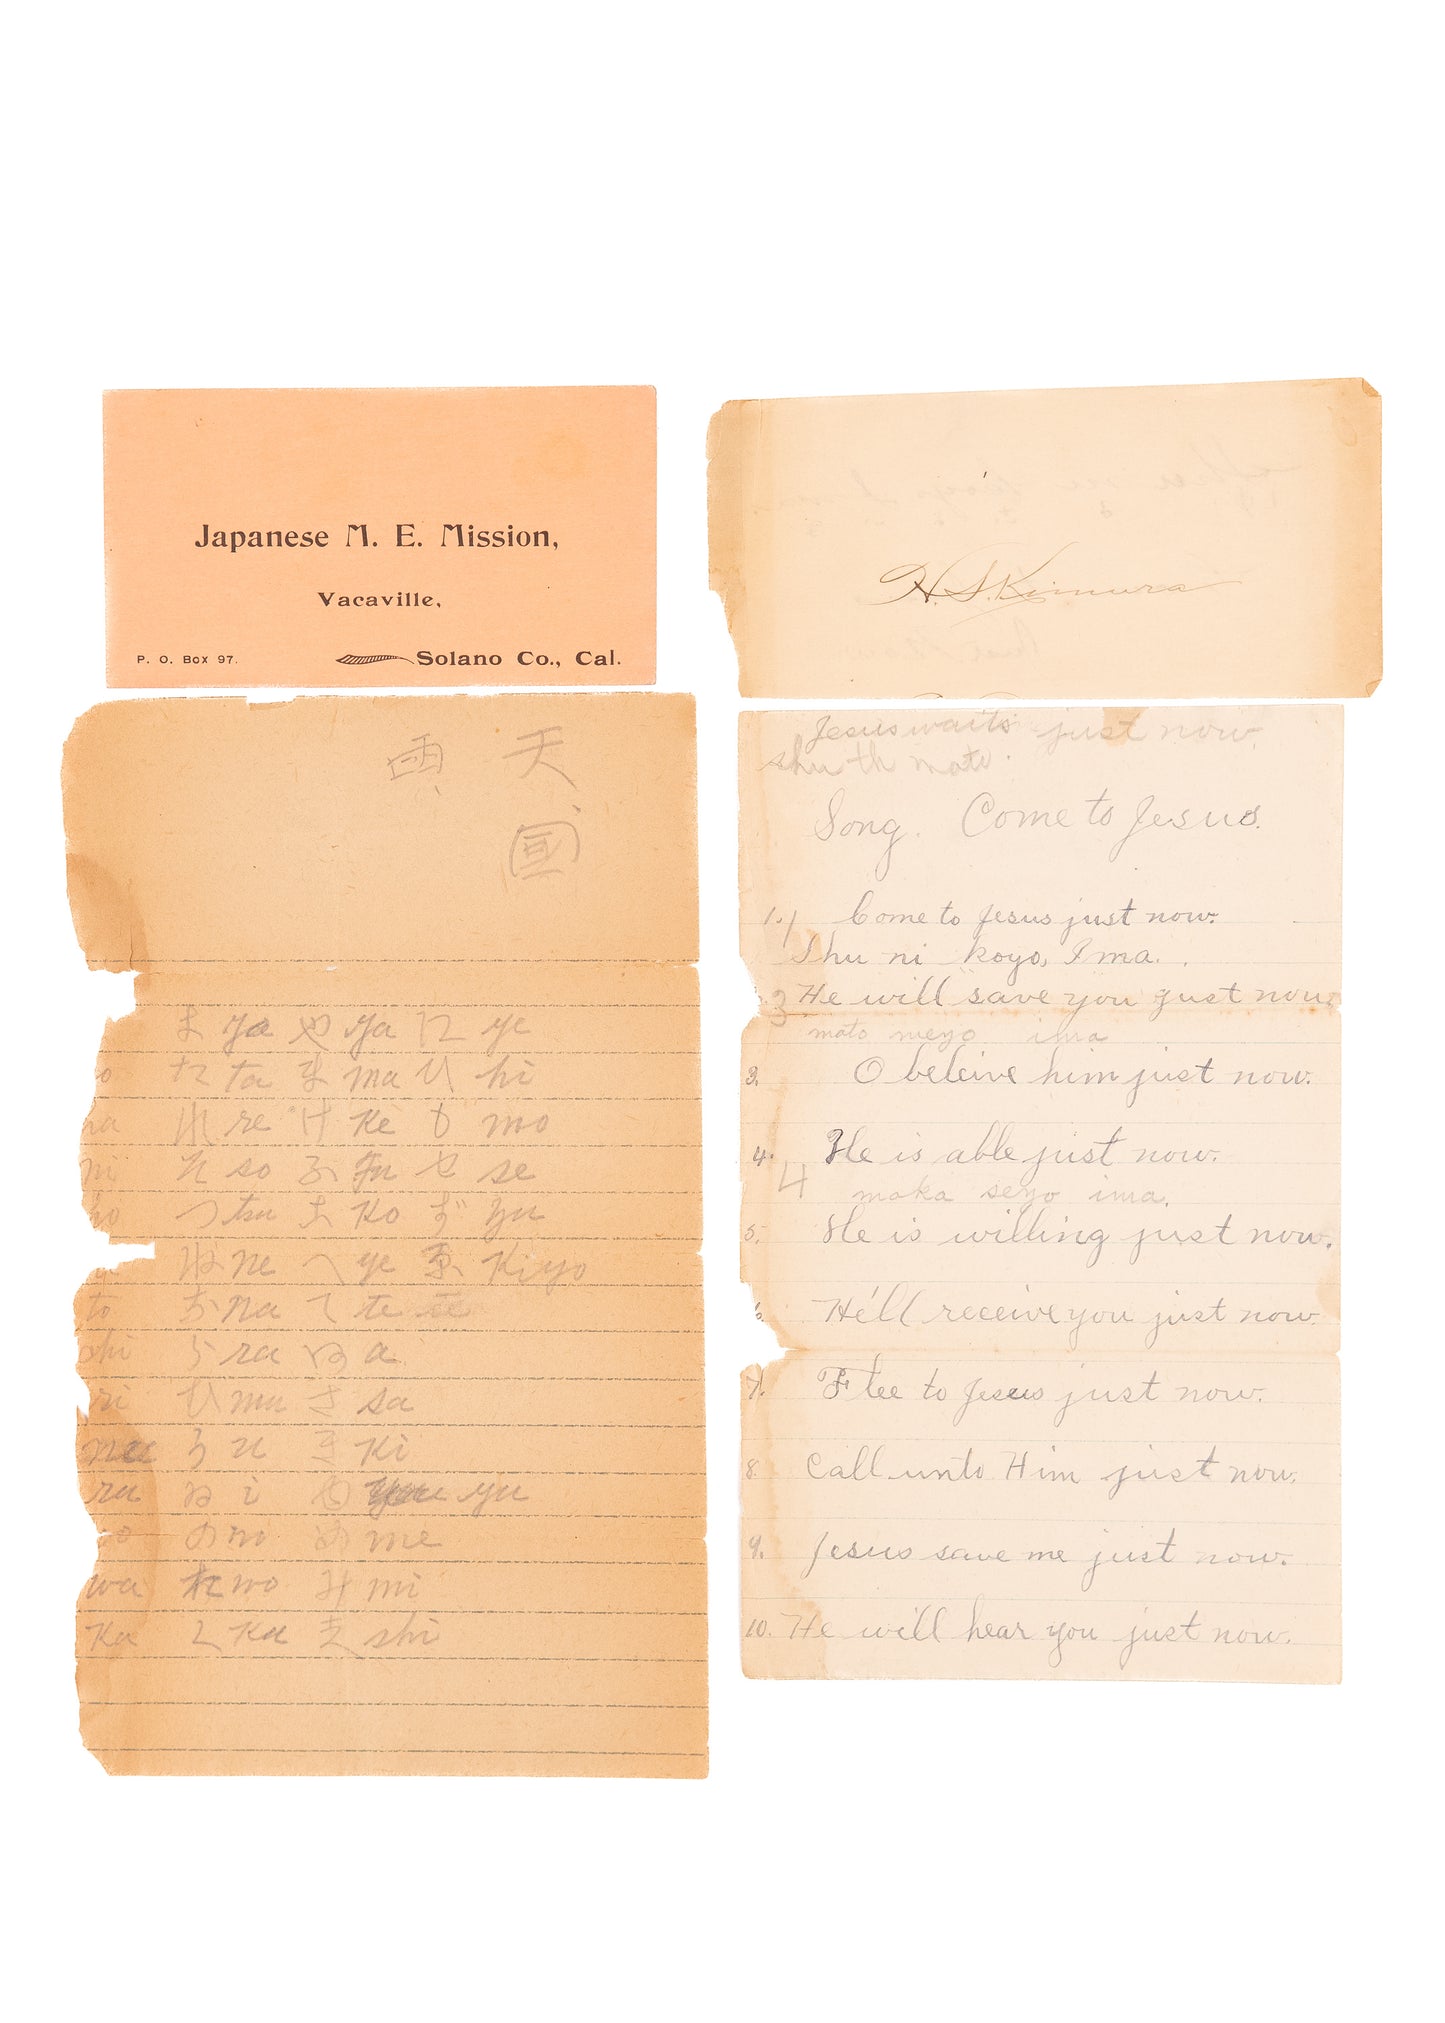 Japanese M. E. Mission,
Vacaville,
P. O. Box 97.
Solano Co., Cal.
H. S. Kimura
雨 天
ya や ya に ye
た ta ま ma ひ hi
れ re け ke も mo
そ so ふ fu せ se
つ tsu こ ko ず zu
ね ne へ ye Kiyo
to な na て te
shi ら ra a
ri む mu さ sa
nu う u き ki
ru ゐ i yu
の no め me
wa wo み mi
ka く ku し shi
Jesus waits just now.
shu mate
Song. Come to Jesus.
1. Come to Jesus just now.
Shu ni koyo, Ima.
3 He will save you gust now.
mato meyo ima
3. O beleive him just now.
4. He is able just now.
4 maka seyo ima.
5. He is willing just now.
6. He'll receive you just now.
7. Flee to Jesus just now.
8. Call unto Him just now.
9. Jesus save me just now.
10. He will hear you just now.